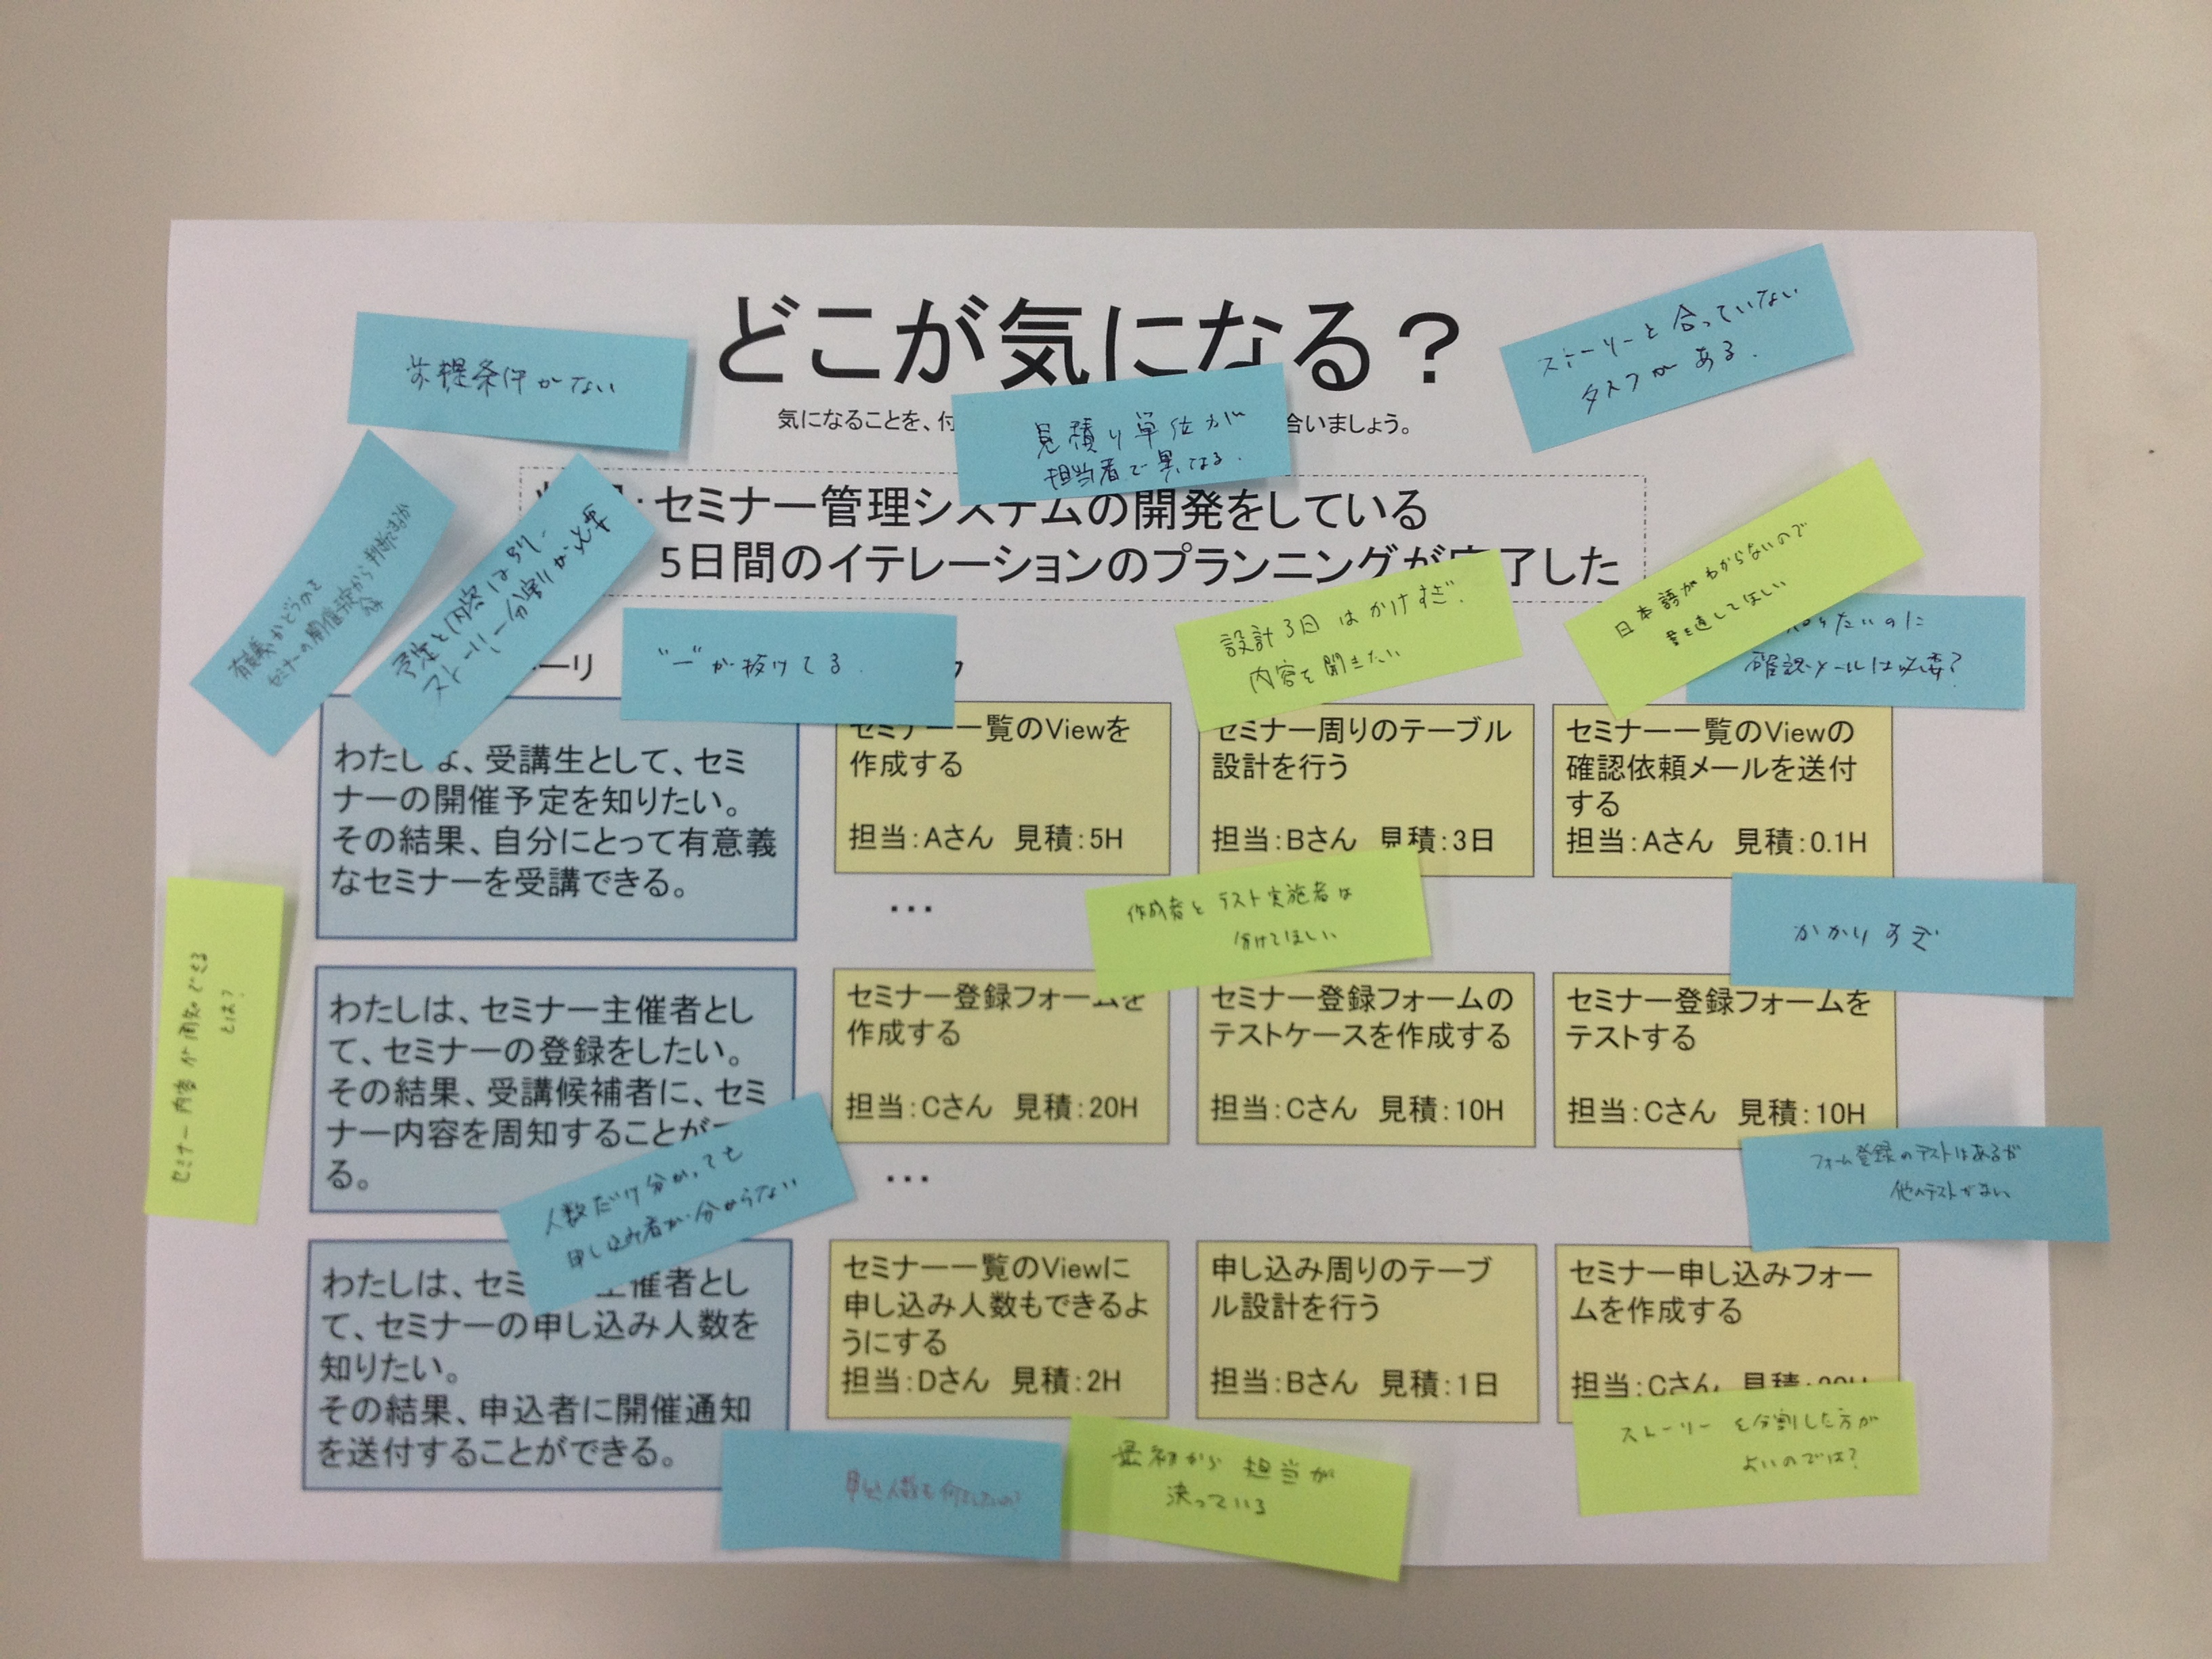 どこが気になる？
前提条件がない
ストーリーと合っていない
タスクがある.
気になることを、付
合いましょう。
見積り単位が
担当者で異なる.
：セミナー管理システムの開発をしている
5日間のイテレーションのプランニングが完了した
有意義かどうかを
セミナーの開催予定から判断できるか
予定と内容は別.
ストーリー分割が必要
ーリ
"ー"が抜けてる.
ク
設計3日はかけすぎ.
内容を聞きたい
日本語がわからないので
書き直してほしい
知りたいのに
確認メールは必要?
わたしは、受講生として、セミ
ナーの開催予定を知りたい。
その結果、自分にとって有意義
なセミナーを受講できる。
セミナー一覧のViewを
作成する
担当：Aさん 見積：5H
セミナー周りのテーブル
設計を行う
担当：Bさん 見積：3日
セミナー一覧のViewの
確認依頼メールを送付
する
担当：Aさん 見積：0.1H
…
作成者とテスト実施者は
分けてほしい
かかりすぎ
セミナー内容が周知できる
とは?
わたしは、セミナー主催者とし
て、セミナーの登録をしたい。
その結果、受講候補者に、セミ
ナー内容を周知することが
る。
セミナー登録フォームを
作成する
担当：Cさん 見積：20H
セミナー登録フォームの
テストケースを作成する
担当：Cさん 見積：10H
セミナー登録フォームを
テストする
担当：Cさん 見積：10H
…
人数だけ分かっても
申し込み者が分からない
フォーム登録のテストはあるが
他のテストがない
わたしは、セミ 主催者とし
て、セミナーの申し込み人数を
知りたい。
その結果、申込者に開催通知
を送付することができる。
セミナー一覧のViewに
申し込み人数もできるよ
うにする
担当：Dさん 見積：2H
申し込み周りのテーブ
ル設計を行う
担当：Bさん 見積：1日
セミナー申し込みフォー
ムを作成する
担当：Cさん 見積：20H
申し込人数も何をしたいの?
最初から担当が
決っている
ストーリーを分割した方が
よいのでは?